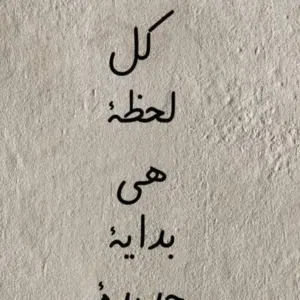 كل
لحظة
هى
بداية